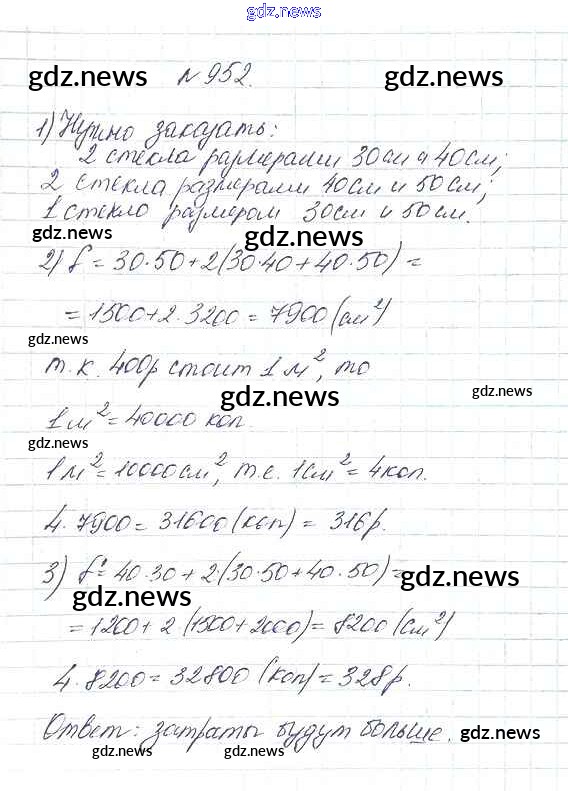 gdz.news
gdz.news № 952. gdz.news
1) Нужно заказать:
2 стекла размерами 30см и 40см;
2 стекла размерами 40см и 50см;
1 стекло размером 30см и 50см.
gdz.news gdz.news
2) S = 30·50+2(30·40+40·50) =
= 1500+2·3200 = 7900 (см²)
gdz.news
т.к. 400р стоит 1 м², то
gdz.news gdz.news
1м² = 40000 коп.
gdz.news
1м² = 10000см², т.е. 1см² = 4коп.
4·7900 = 31600 (коп) = 316р.
3) S = 40·30 + 2(30·50+40·50) =
gdz.news gdz.news
= 1200 + 2·(1500+2000) = 8200 (см²)
4·8200 = 32800 (коп) = 328р.
Ответ: затраты будут больше. gdz.news
gdz.news gdz.news gdz.news